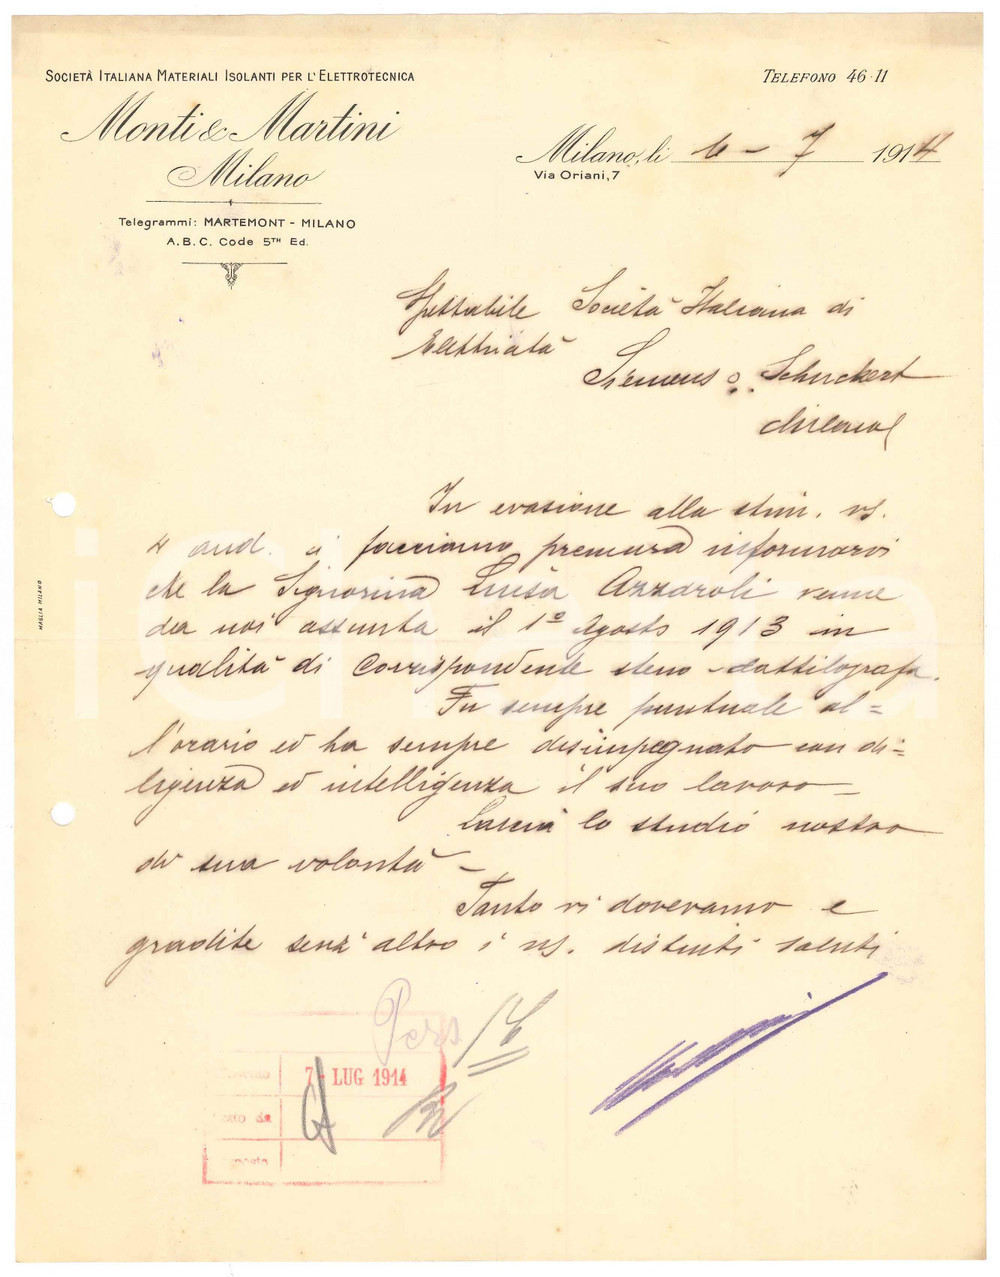 SOCIETÀ ITALIANA MATERIALI ISOLANTI PER L'ELETTROTECNICA
Monti & Martini
Milano
Telegrammi: MARTEMONT - MILANO
A.B.C. Code 5TH Ed.
TELEFONO 46-11
Milano, li 6 - 7 1914
Via Oriani, 7
Spettabile Società Italiana di
Elettricità
Siemens Schuckert
Milano
In evasione alla stim. vs.
4 and. ci facciamo premura informarvi
che la Signorina Luisa Azzaroli venne
da noi assunta il 1º Agosto 1913 in
qualità di corrispondente steno-dattilografa.
Fu sempre puntuale al=
l'orario ed ha sempre disimpegnato con di=
ligenza ed intelligenza il suo lavoro –
Lasciò lo studio nostro
di sua volontà –
Tanto vi dovevamo e
gradite senz'altro i ns. distinti saluti
Pers
7 - LUG 1914
iCharta